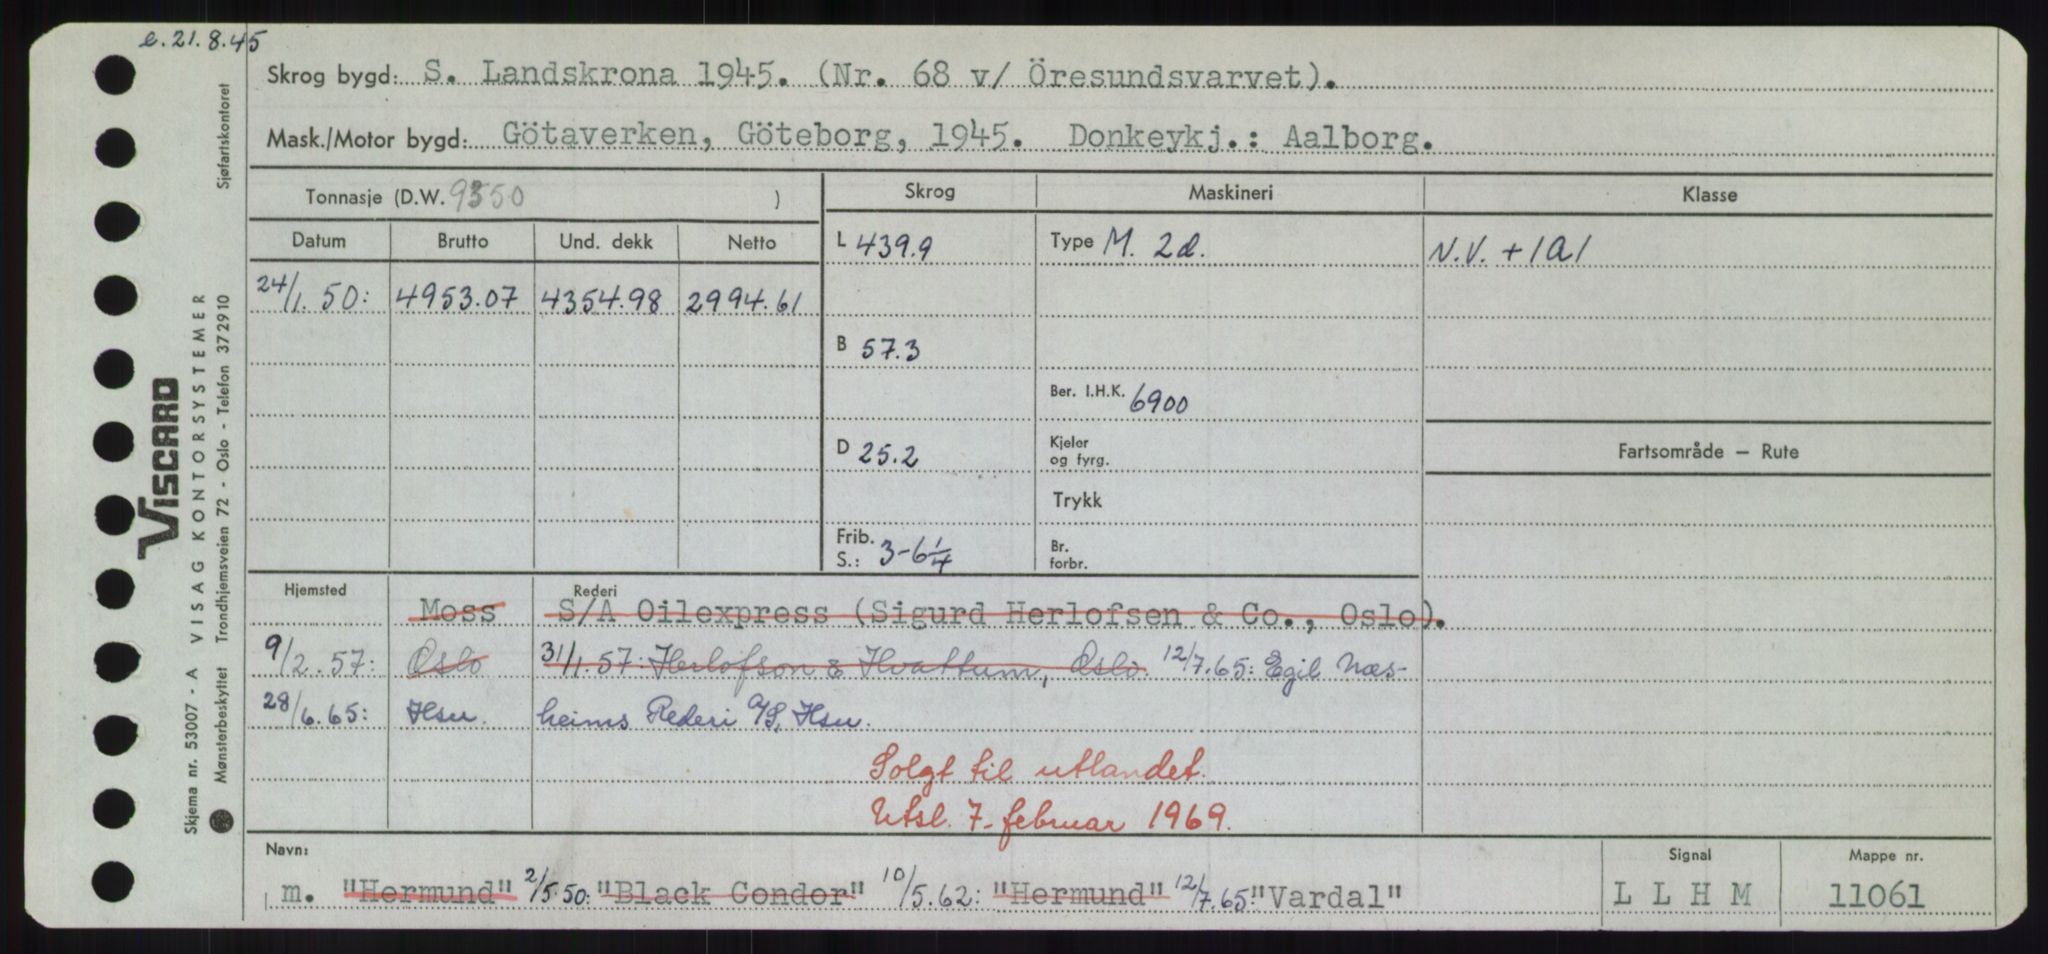 e.21.8.45
Skrog bygd: S. Landskrona 1945. (Nr. 68 v/ Öresundsvarvet).
Mask./Motor bygd: Götaverken, Göteborg, 1945. Donkeykj.: Aalborg.
Tonnasje (D.W. 9350 )
Skrog Maskineri Klasse
Datum Brutto Und. dekk Netto
L 439.9 Type M. 2d. N.V. + 1A1
24/1.50: 4953.07 4354.98 2994.61
B 57.3
Ber. I.H.K. 6900
D 25.2 Kjeler og fyrg. Fartsområde – Rute
Trykk
Frib. S.: 3-6 1/4 Br. forbr.
Hjemsted Rederi
Moss S/A Oilexpress (Sigurd Herlofsen & Co., Oslo).
9/2.57: Oslo 31/1.57: Herlofson & Hvattum, Oslo. 12/7.65: Egil Næs-
28/6.65: Hsu. heims Rederi A/S, Hsu.
Solgt til utlandet.
Utsl. 7. februar 1969.
Navn: Signal Mappe nr.
m. "Hermund" 2/5.50: "Black Condor" 10/5.62: "Hermund" 12/7.65: "Vardal" L L H M 11061
VISCARD
Skjema nr. 53007 - A VISAG KONTORSYSTEMER
Mønsterbeskyttet Trondhjemsveien 72 - Oslo - Telefon 372910 Sjøfartskontoret